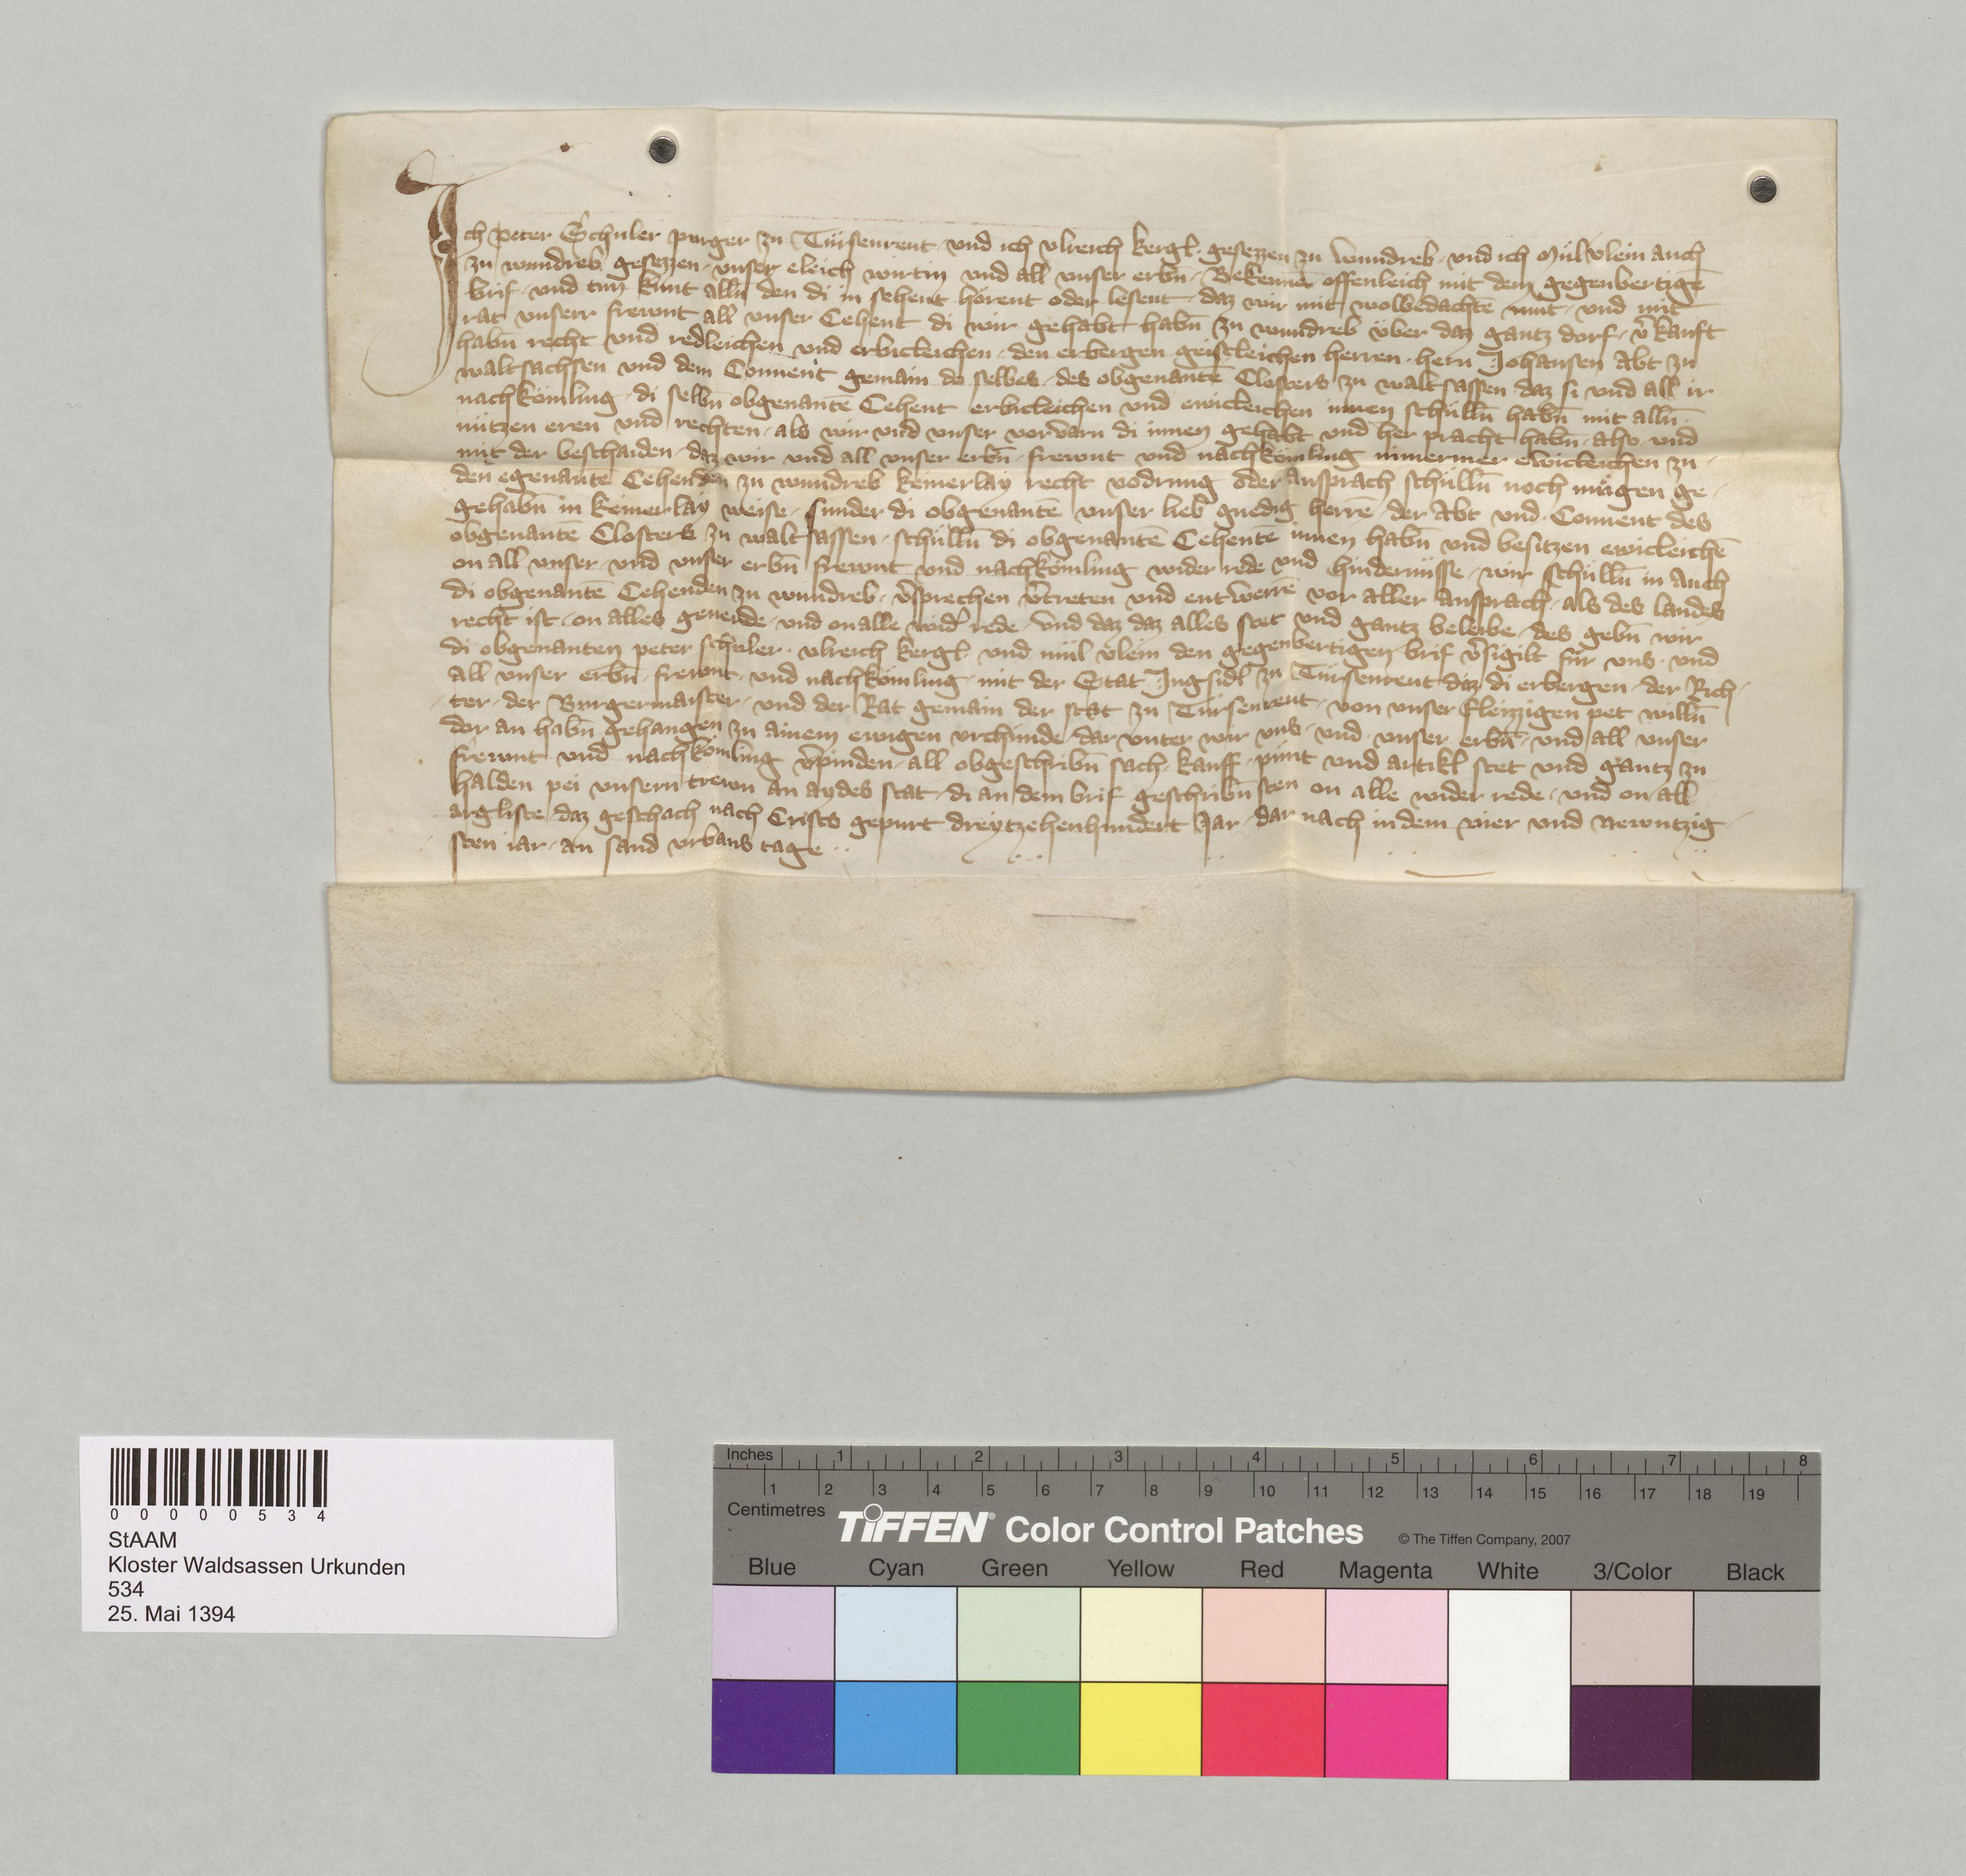 Ich Peter Schuler purger zu Türsenrent und ich vlreich kergl gesezzen zu wundreb und ich Mül vlein auch
zu wundreb gesezzen unser eleich wirtin und all unser erbn̄ Bekennen offenleich mit dem gegenbertigē
brif und tun kunt alln̄ den di in sehent hörent oder lesent daz wir mit wolbedachtē mut und mit
rat unserr frewnt all unser Cehent di wir gehabt habn̄ zu wundreb über daz gantz dorf v̄kauft
habn̄ recht und redleichen und erbicleichen den erbergen geistleichen herren hern Johansen Abt zu
waltsachsen und dem Convent gemain do selbes des obgenantē Closters zu waltsassen daz si und all ir
nachkömling di selbn̄ obgenantē Cehent erbicleichen und ewicleichen innen schülln̄ habn̄ mit alln̄
nützen eren und rechten als wir und unser vorvarn di innen gehabt und her pracht habn̄ also und
mit der beschaiden daz wir und all unser erbn̄ frewnt und nachkömling nimermer ewicleichen zu
den egenantē Cehenden zu wundreb keinerlay recht vodrung oder Ansprach schülln̄ noch mügen ge
gehabn̄ in keinerlay weise sunder di obgenantē unser lieb gnedig herrē der Abt und Convent des
obgenantē Closters zu waltsassen schülln̄ di obgenantē Cehentē innen habn̄ und besitzen ewicleichē
on all unser und unser erbn̄ frewnt und nachkömling wider rede und hindernüsse wir schülln̄ in Auch
di obgenantē Cehenden zu wundreb v̄sprechen v̄treten und entwerrē vor aller Ansprach als des landes
recht ist on alles geverde und on alle wid' rede und daz daz alles stet und gantz beleibe des gebn̄ wir
di obgenanten peter schuler vlreich kergl und mül vlein den gegenbertigen brif v̄sigilt für uns und
all unser erbn̄ frewnt und nachkömling mit der Stat Jngsidl zu Türsenrent daz di erbergen der Rich
ter der Burgermaister und der Rat gemain der stat zu Türsenrent von unser fleizzigen pet willn̄
dor an habn̄ gehangen zu ainem ewigen vrchunde dar unter wir uns und unser erbn̄ und all unser
frewnt und nachkömling v̄pinden all obgeschribn̄ sach kauff pünt und artikl stet und gantz zu
halden pei unsern trewn an aydes stat di an dem brif geschribn̄ sten on alle wider rede und on all
argliste daz geschach nach Crists gepurt dreytzehenhundert Jar dar nach in dem vier und newntzig
sten iar an sand vrbans tage
00000534
StAAM
Kloster Waldsassen Urkunden
534
25. Mai 1394
Inches 1 2 3 4 5 6 7 8
1 2 3 4 5 6 7 8 9 10 11 12 13 14 15 16 17 18 19
Centimetres
TIFFEN® Color Control Patches © The Tiffen Company, 2007
Blue Cyan Green Yellow Red Magenta White 3/Color Black